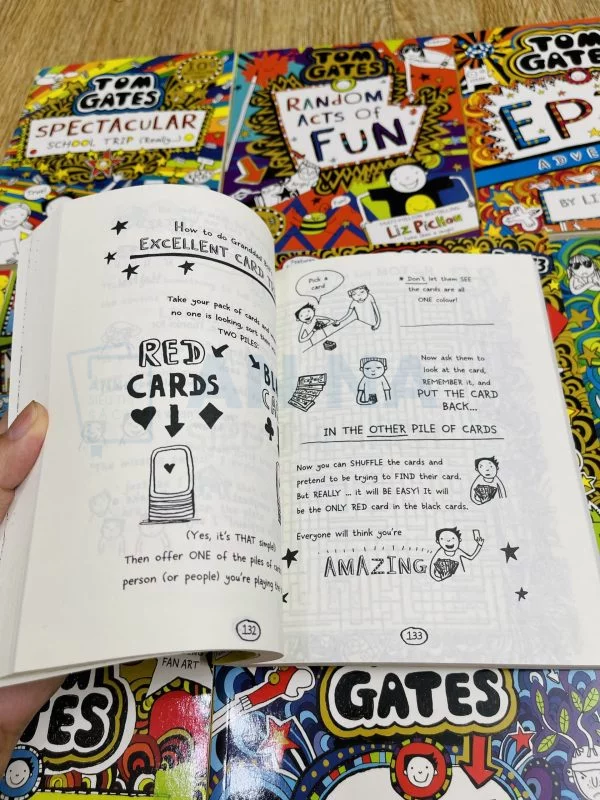 TOM
GATES
SPECTACULAR
SCHOOL TRIP (Really...)
TOM
GATES
RANDOM
ACTS OF
FUN
LIZ PICHON
TOM
GATES
BY
How to do Granddad
EXCELLENT CARD
Take your pack of cards and
no one is looking, sort
TWO PILES:
RED
CARDS
(Yes, it's THAT simple)
Then offer ONE of the piles of
person (or people) you're playing
132
Pick a
card
Don't let them SEE
the cards are all
ONE colour!
Now ask them to
look at the card,
REMEMBER it, and
PUT THE CARD
BACK...
IN THE OTHER PILE OF CARDS
Now you can SHUFFLE the cards and
pretend to be trying to FIND their card.
But REALLY ... it will BE EASY! It will
be the ONLY RED card in the black cards.
Everyone will think you're
AMAZING
133
FAN ART
GATES